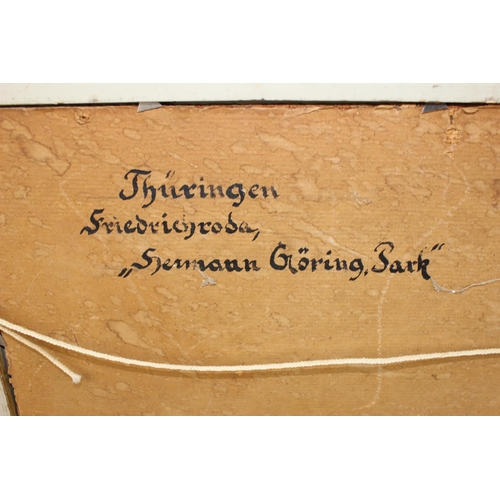 Thüringen
Friedrichroda,
„Hermann Göring, Park“